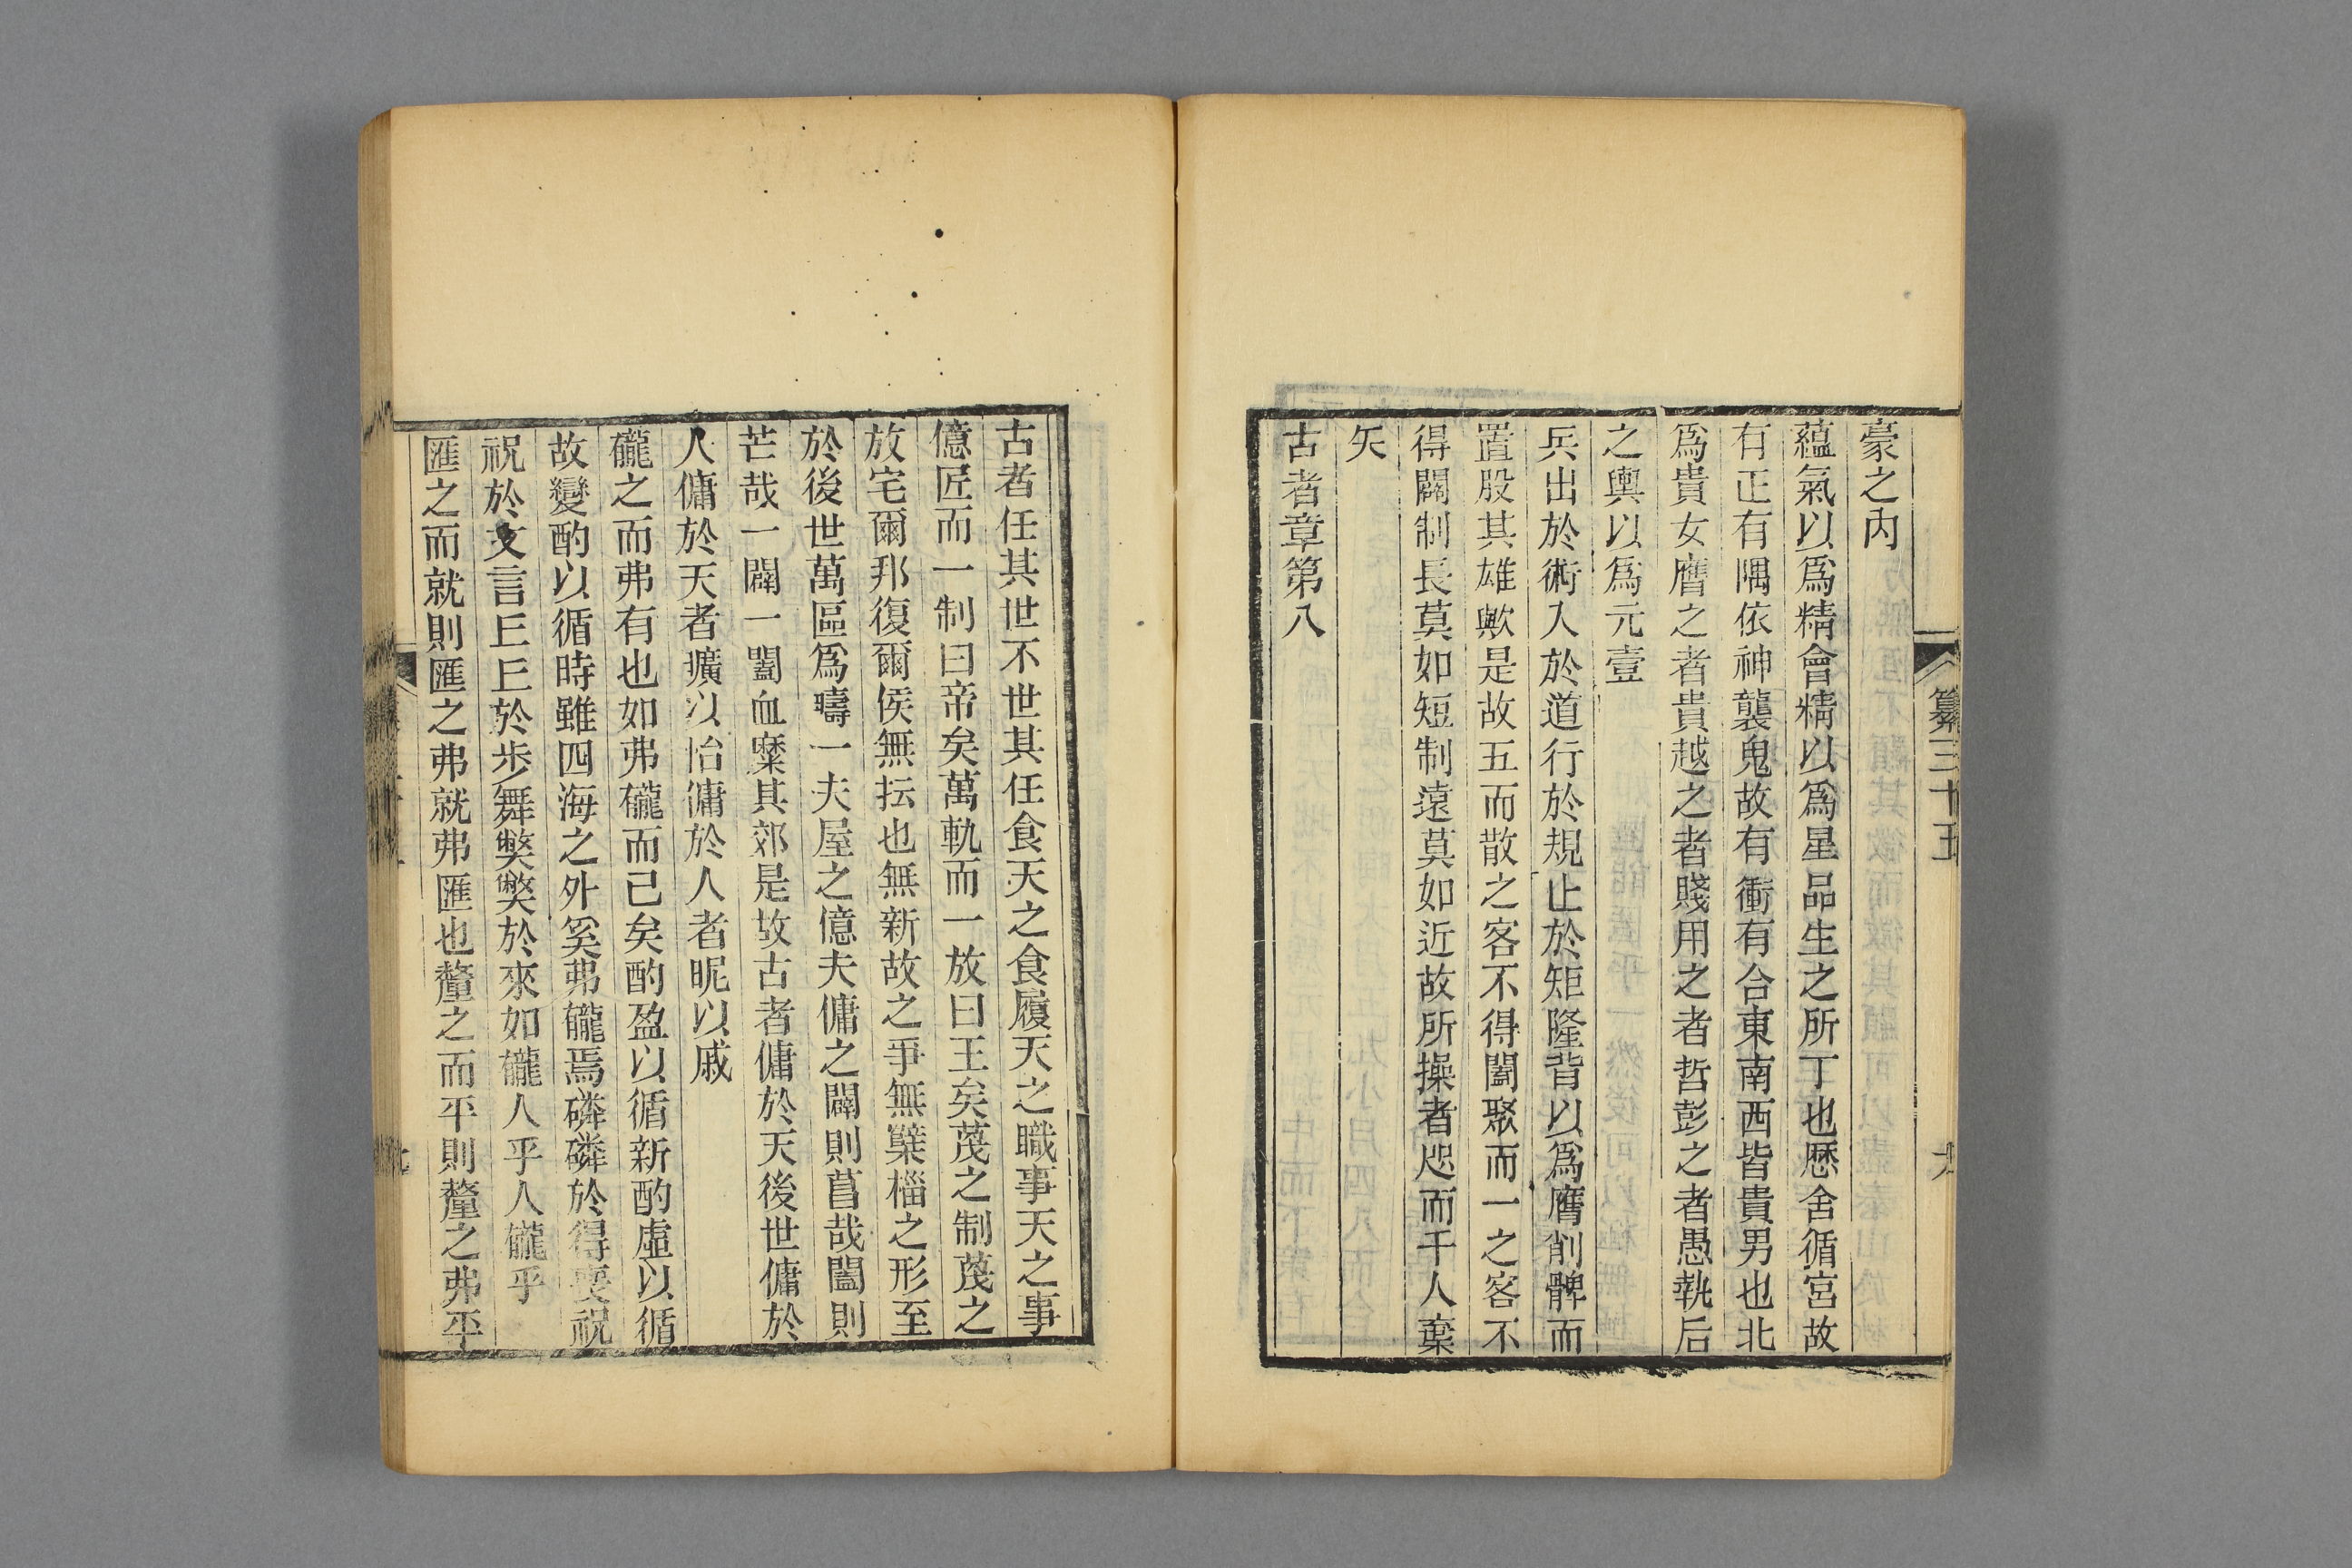 纂三十五
豪之內
蘊氣以爲精會精以爲星品生之所丁也歷舍循宮故
有正有隅依神襲鬼故有衝有合東南西皆貴男也北
爲貴女膺之者貴越之者賤用之者哲彭之者愚執后
之輿以爲元壹
兵出於術入於道行於規止於矩隆背以爲膺削髀而
置股其雄歟是故五而散之客不得闔聚而一之客不
得闢制長莫如短制遠莫如近故所操者咫而千人棄
矢
古者章第八
古者任其世不世其任食天之食履天之職事天之事
億匠而一制曰帝矣萬軌而一放曰王矣蔑之制蔑之
放宅爾邦復爾侯無抎也無新故之爭無櫱椔之形至
於後世萬區爲疇一夫屋之億夫傭之闢則菖哉闔則
芒哉一闢一闔血糜其郊是故古者傭於天後世傭於
人傭於天者癀以怡傭於人者昵以戚
之而弗有也如弗而已矣酌盈以循新酌虛以循
故變酌以循時雖四海之外奚弗焉磷磷於得喪祝
祝於文言㠪㠪於步舞獘獘於來如人乎人乎
匯之而就則匯之弗就弗匯也釐之而平則釐之弗平